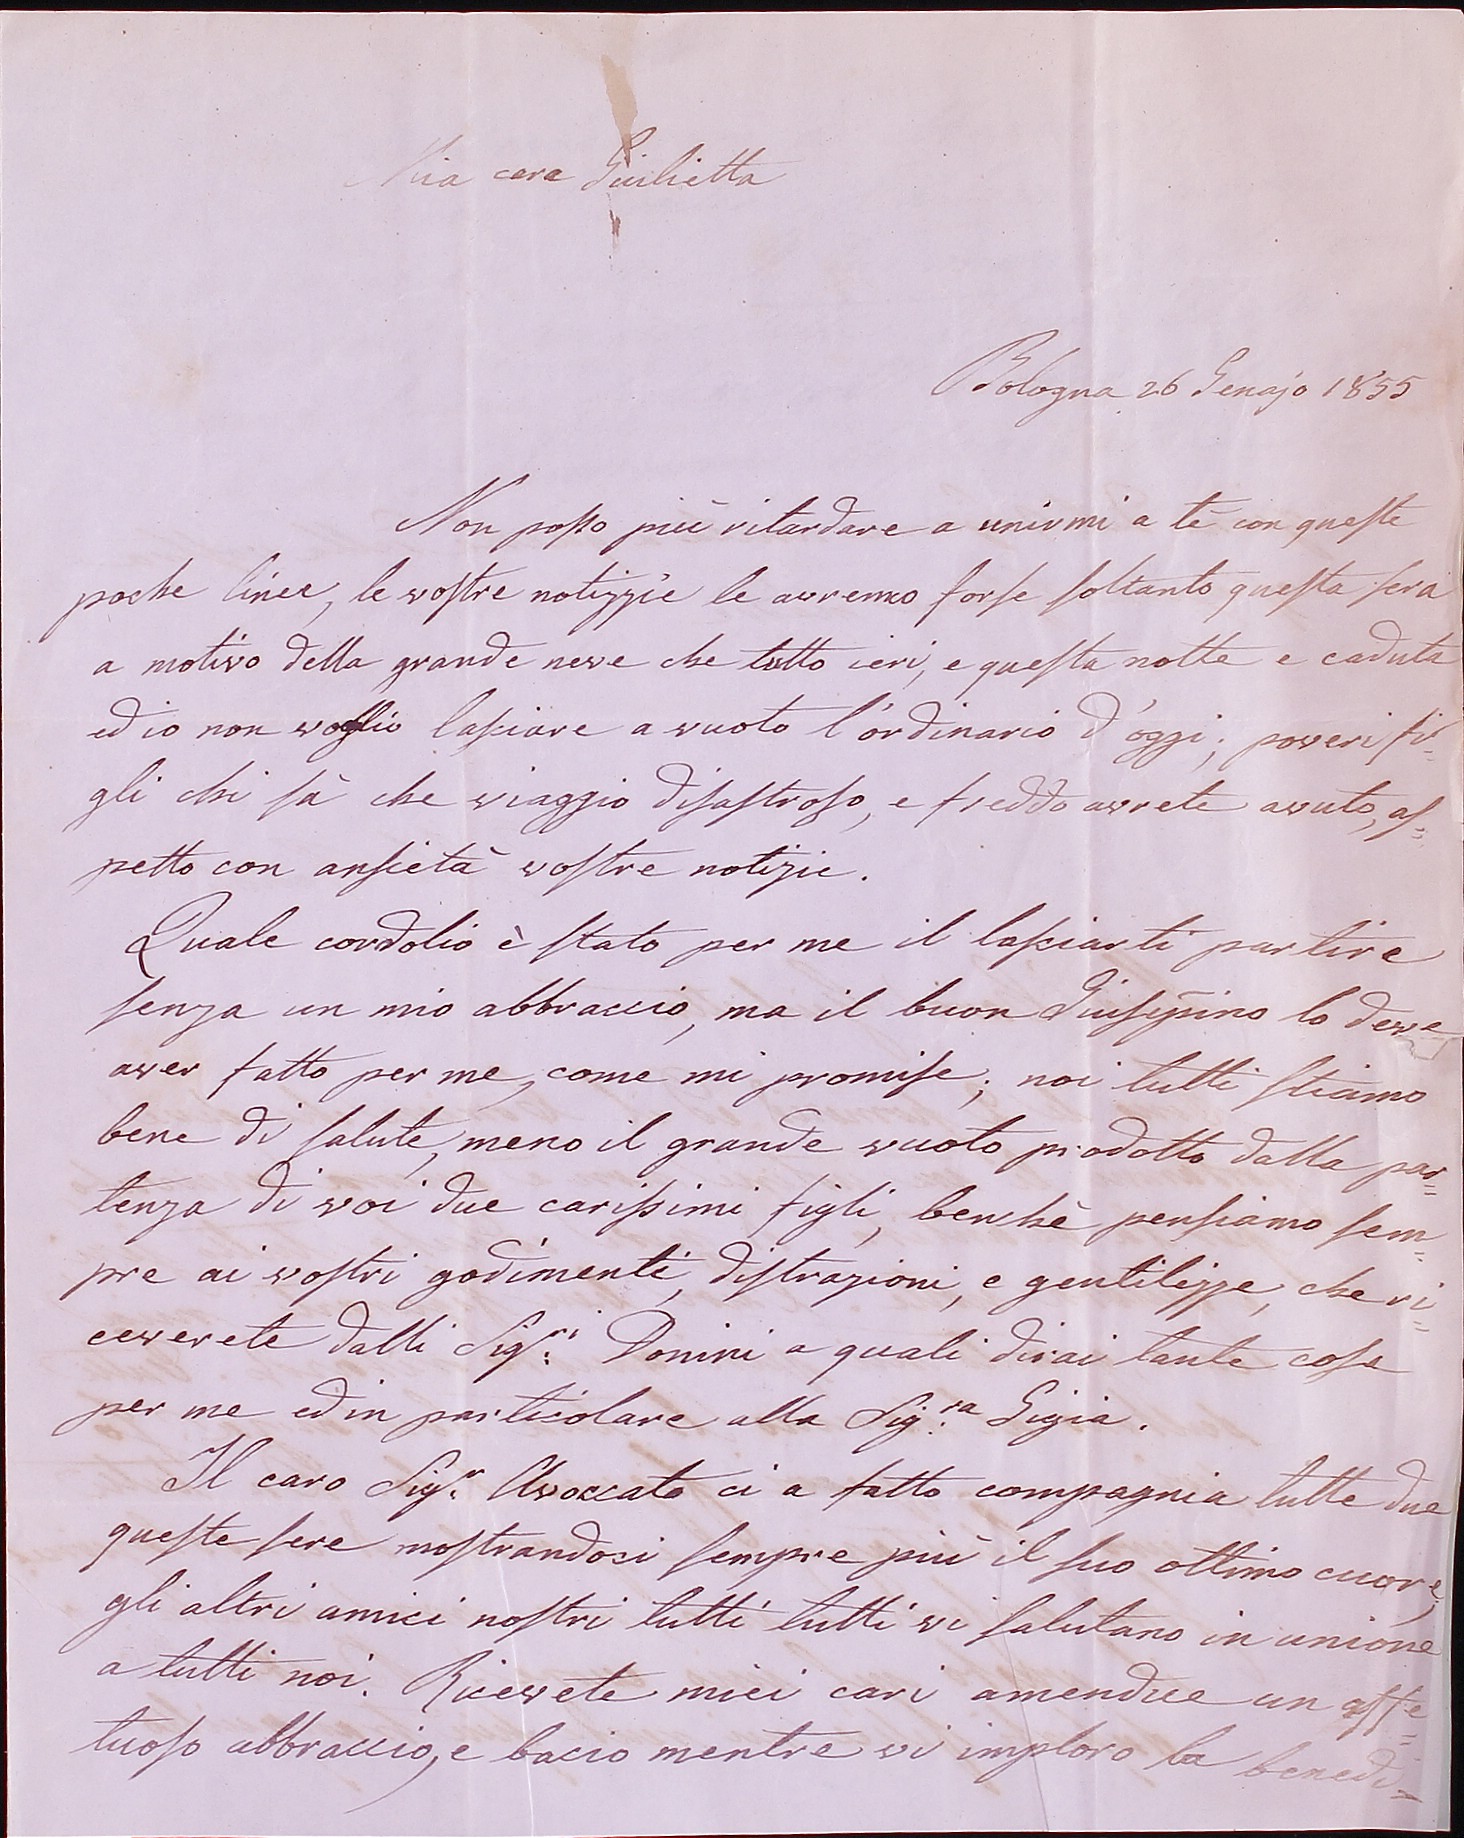 Mia cara Giulietta
Bologna 26 Genajo 1855
Non posso più ritardare a unirmi a tè con queste
poche linee, le vostre notizzie le avremo forse soltanto questa sera
a motivo della grande neve che tutto ieri, e questa notte e caduta
ed io non voglio lasciare a vuoto l'ordinario d'oggi; poveri fi=
gli chi sà che viaggio disastroso, e freddo avrete avuto, as=
petto con ansietà vostre notizie.
Quale cordolio è stato per me il lasciarti partire
senza un mio abbraccio, ma il buon Giuseppino lo deve
aver fatto per me, come mi promise; noi tutti stiamo
bene di salute, meno il grande vuoto prodotto dalla par=
tenza di voi due carissimi figli, benchè pensiamo sem=
pre ai vostri godimenti, distrazioni, e gentilezze, che ri=
ceverete dalli Sig.ri Donini a quali dirai tante cose
per me ed in particolare alla Sig.ra Gigia.
Il caro Sig.r Avoccato ci a fatto compagnia tutte due
queste sere mostrandosi sempre più il suo ottimo cuore,
gli altri amici nostri tutti tutti vi salutano in unione
a tutti noi. Ricevete miei cari amendue un affe=
tuoso abbraccio, e bacio mentre vi imploro la benedi=